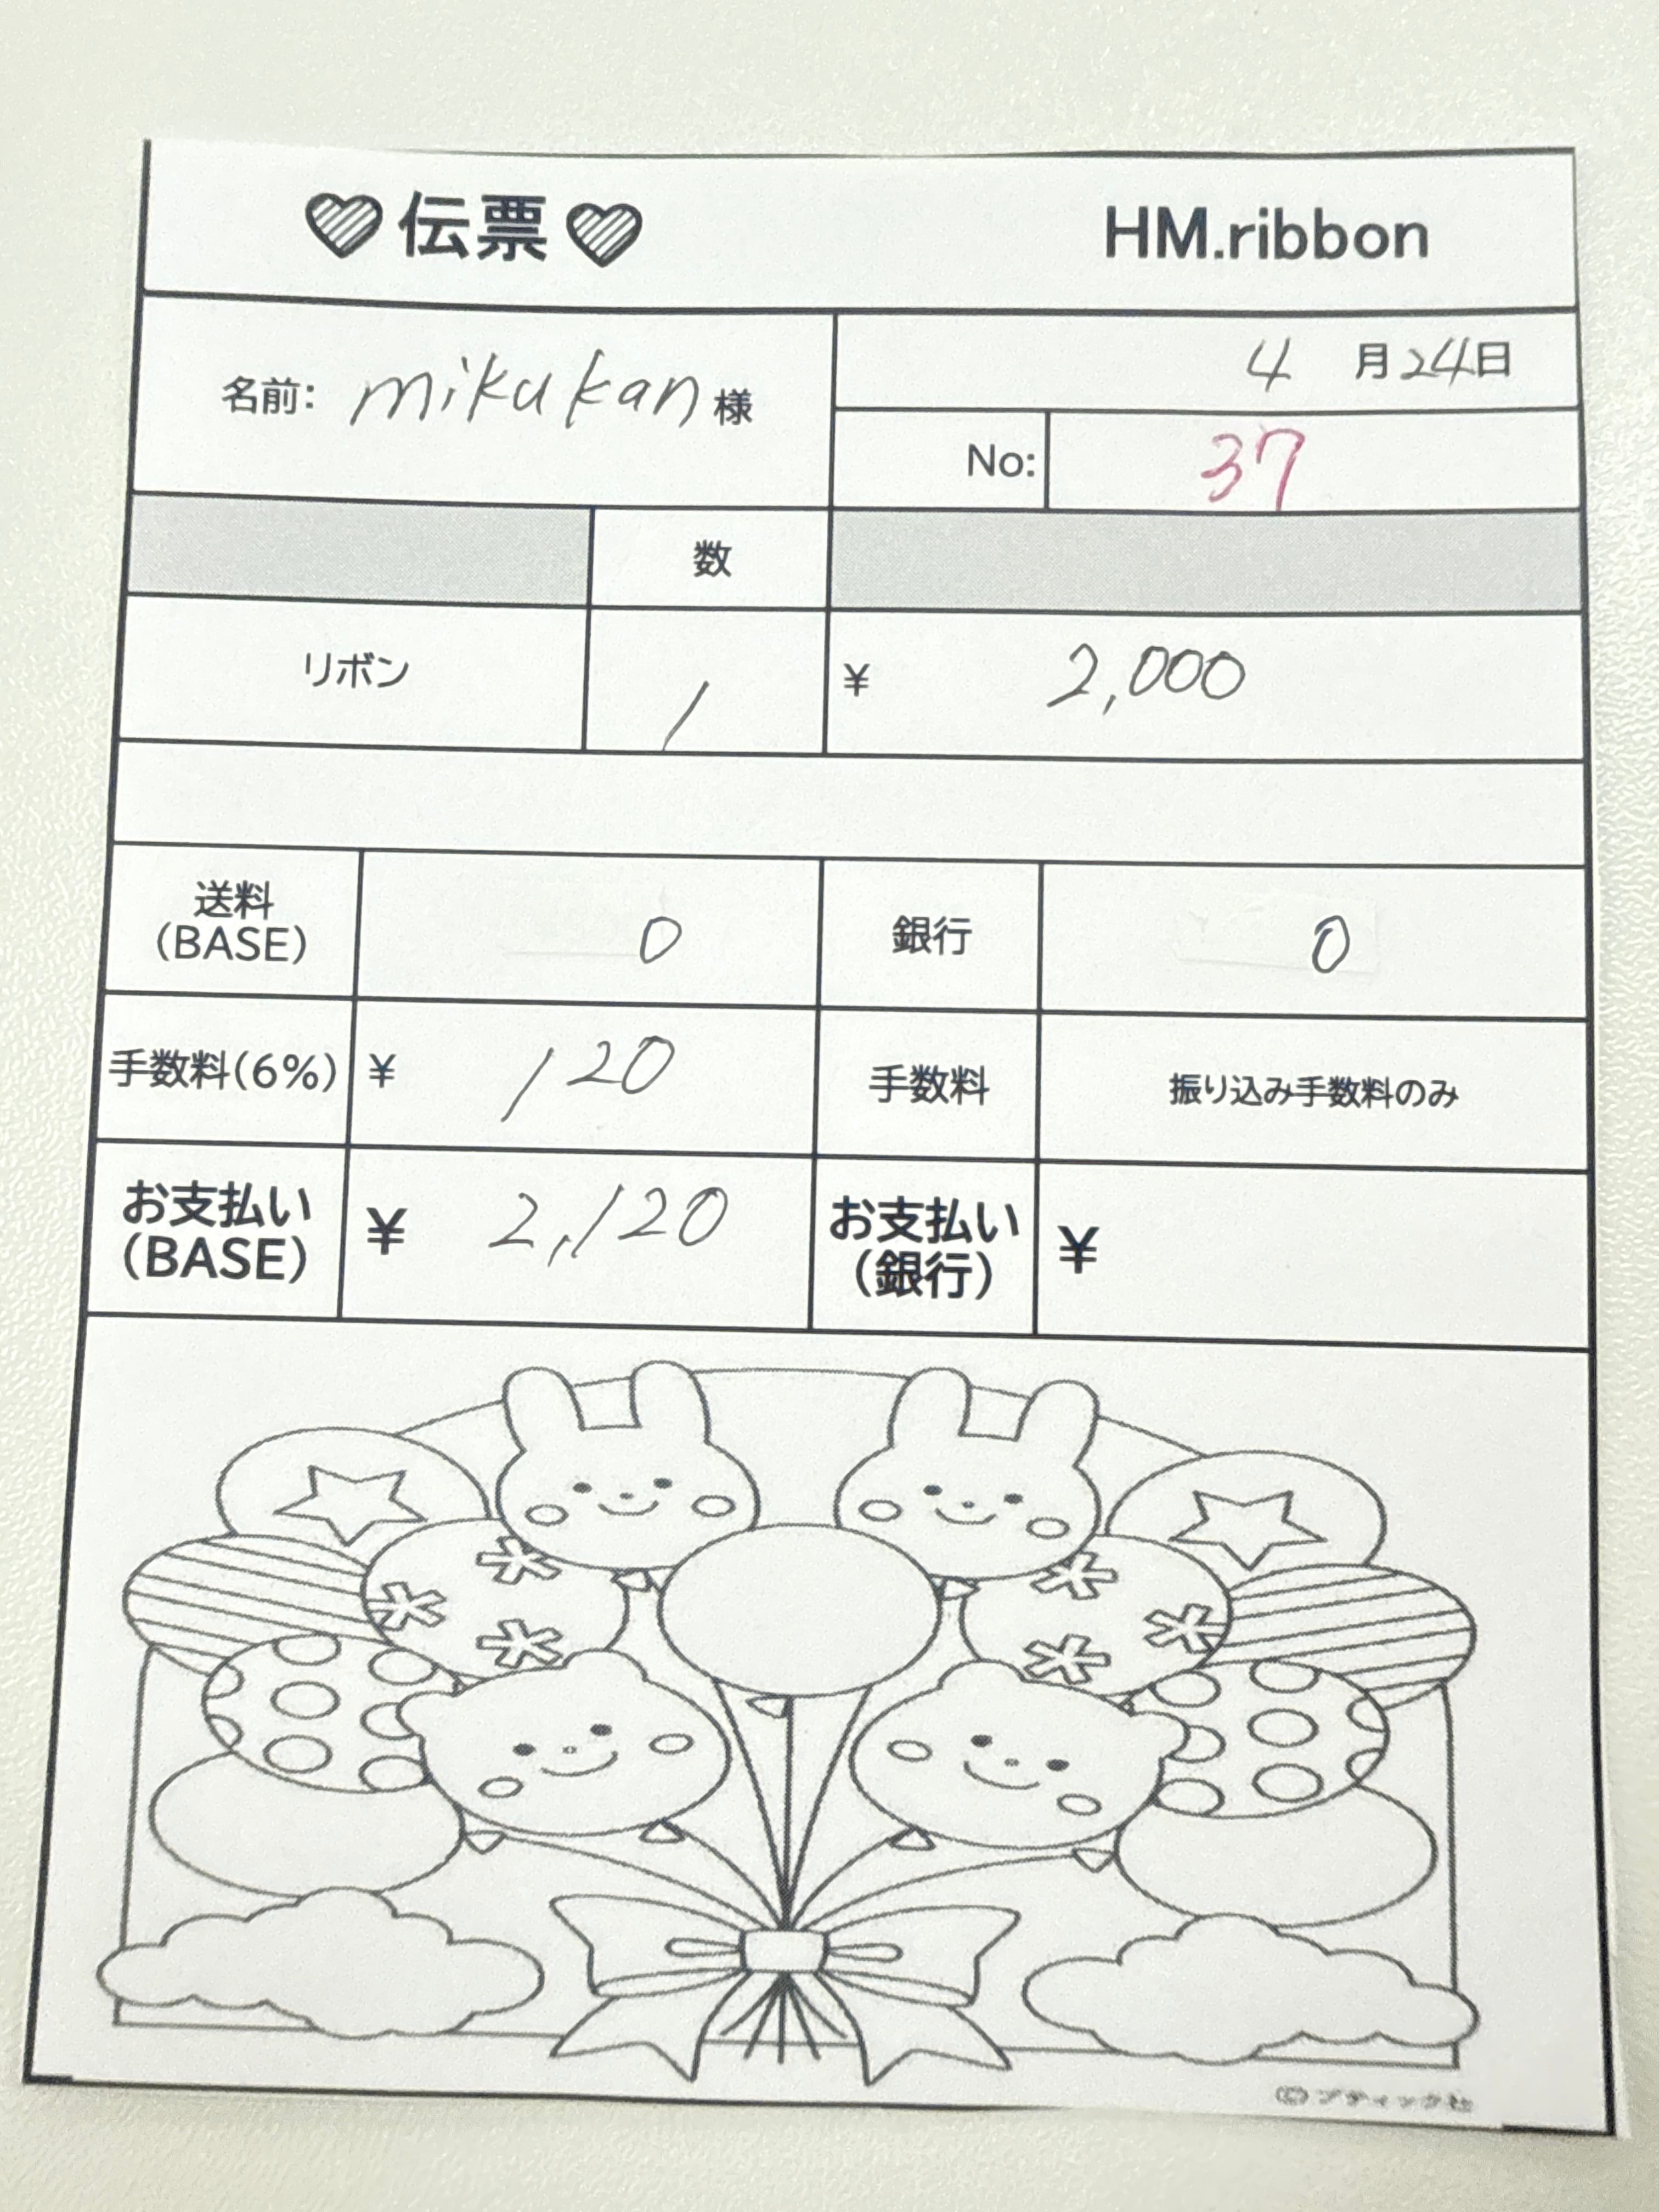 伝票 HM.ribbon
名前: mikukan 様
4 月 24 日
No: 37
数
リボン 1 ¥ 2,000
送料 (BASE) 0 銀行 0
手数料(6%) ¥ 120 手数料 振り込み手数料のみ
お支払い (BASE) ¥ 2,120 お支払い (銀行) ¥
© ブティック社